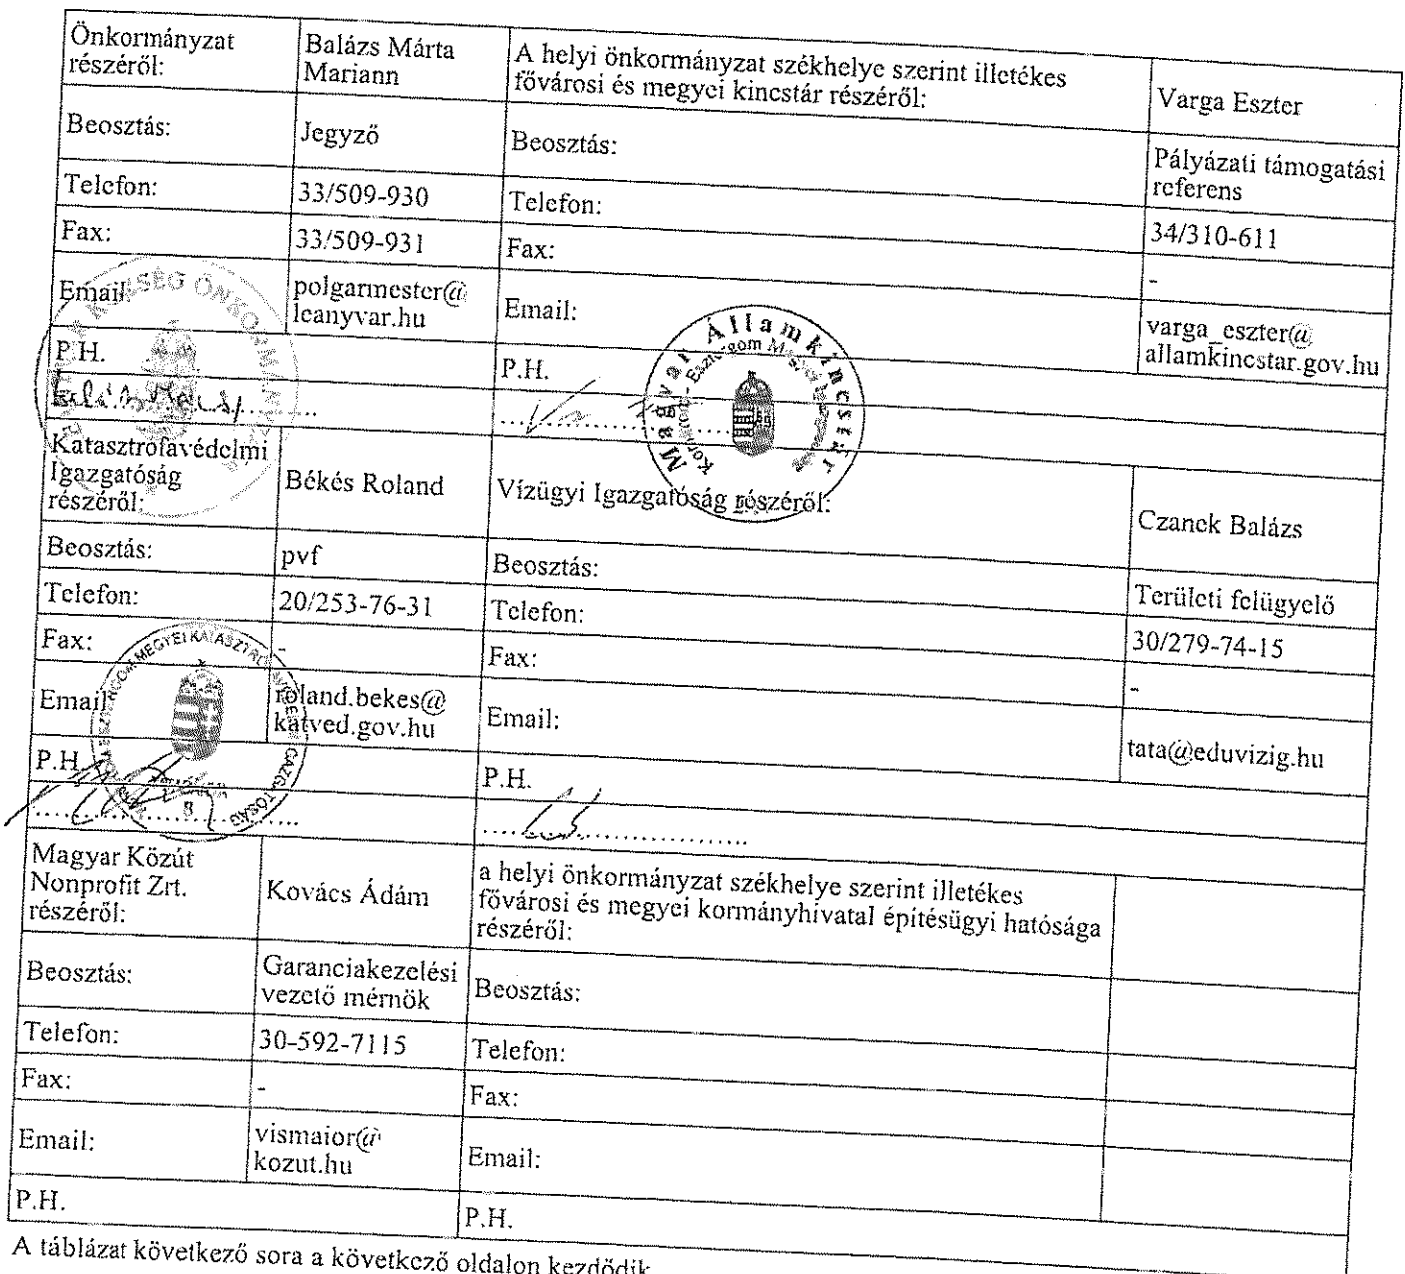 Önkormányzat
részéről:
Balázs Márta
Mariann
A helyi önkormányzat székhelye szerint illetékes
fővárosi és megyei kincstár részéről:
Varga Eszter
Beosztás:
Jegyző
Beosztás:
Pályázati támogatási
referens
Telefon:
33/509-930
Telefon:
34/310-611
Fax:
33/509-931
Fax:
-
Email:
polgarmester@
leanyvar.hu
Email:
varga_eszter@
allamkincstar.gov.hu
P.H.
P.H.
Magyar Államkincstár
Katasztrófavédelmi
Igazgatóság
részéről:
Békés Roland
Vízügyi Igazgatóság részéről:
Czanek Balázs
Beosztás:
pvf
Beosztás:
Területi felügyelő
Telefon:
20/253-76-31
Telefon:
30/279-74-15
Fax:
-
Fax:
-
Email:
roland.bekes@
katved.gov.hu
Email:
tata@eduvizig.hu
P.H.
P.H.
Magyar Közút
Nonprofit Zrt.
részéről:
Kovács Ádám
a helyi önkormányzat székhelye szerint illetékes
fővárosi és megyei kormányhivatal építésügyi hatósága
részéről:
Beosztás:
Garanciakezelési
vezető mérnök
Beosztás:
Telefon:
30-592-7115
Telefon:
Fax:
-
Fax:
Email:
vismaior@
kozut.hu
Email:
P.H.
P.H.
A táblázat következő sora a következő oldalon kezdődik